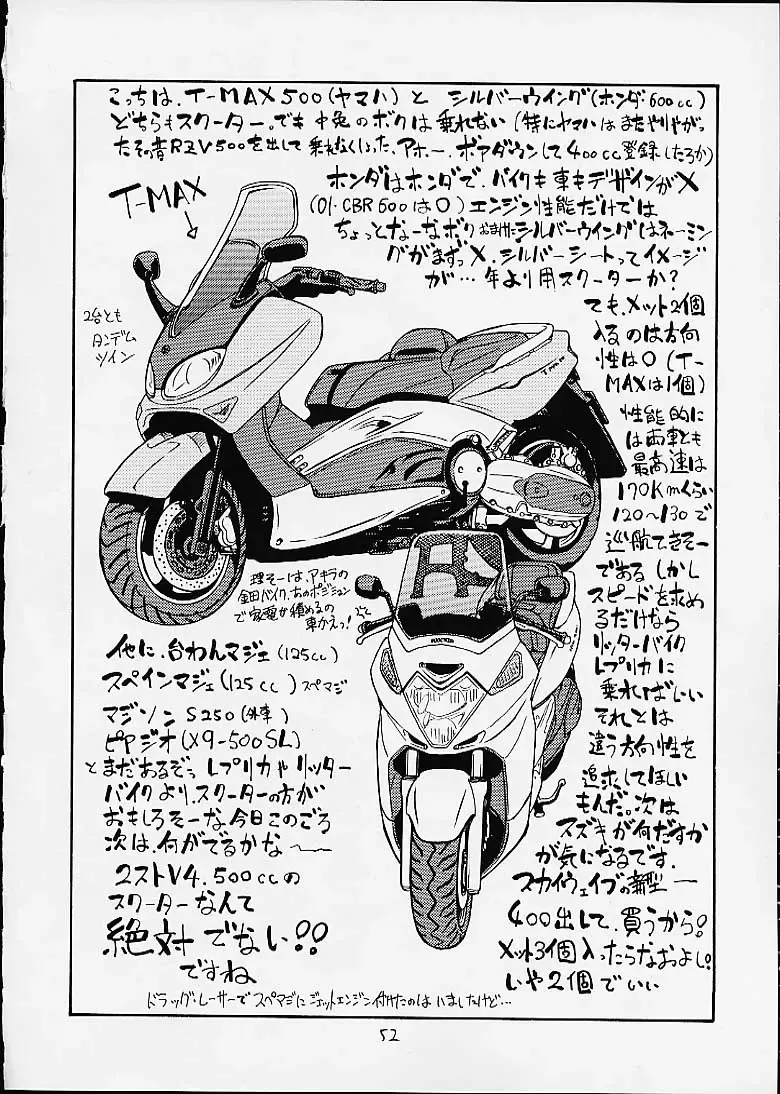 こっちは、T-MAX500(ヤマハ)と シルバーウイング(ホンダ・600cc)
どちらもスクーター。でも中免のボクは乗れない(特にヤマハはまたやりやがっ
たその昔RZV500を出して乗れなくしたっ、アホー、ボアダウンして400cc登録したろか)
ホンダはホンダで、バイクも車もデザインが×
(01・CBR600は○)エンジン性能だけでは
ちょっとなーなボク おまけにシルバーウイングはネーミン
グがまずっ×、シルバーシートってイメージ
が…年より用スクーターか?
T-MAX
2台とも
タンデム
ツイン
でも、メット2個
入るのは方向
性は○(T-
MAXは1個)
性能的に
は両車とも
最高速は
170Kmくらい
120〜130で
巡航できそー
である しかし
スピードを求め
るだけなら
リッターバイク
レプリカに
乗ればいい
それとは
違う方向性を
追求してほしい
もんだ。次は
スズキが何だすか
が気になるです.
スカイウェイブの新型ー
400出して、買うから!
メット3個入ったらなおよし!
いや2個でいい
理そーは、アキラの
金田バイク、あのポジション
で家電が積めるの
車かえっ!
他に、台わんマジェ(125cc)
スペインマジェ(125cc)スペマジ
マジソン S250(外車)
ピヤジオ(X9-500SL)
とまだあるぞっ レプリカやリッター
バイクより、スクーターの方が
おもしろそーな、今日このごろ
次は、何がでるかな〜
2ストV4.500ccの
スクーターなんて
絶対でない!!
ですね
ドラッグ・レーサーでスペマジにジェットエンジン付けたのはいましたけど…
52